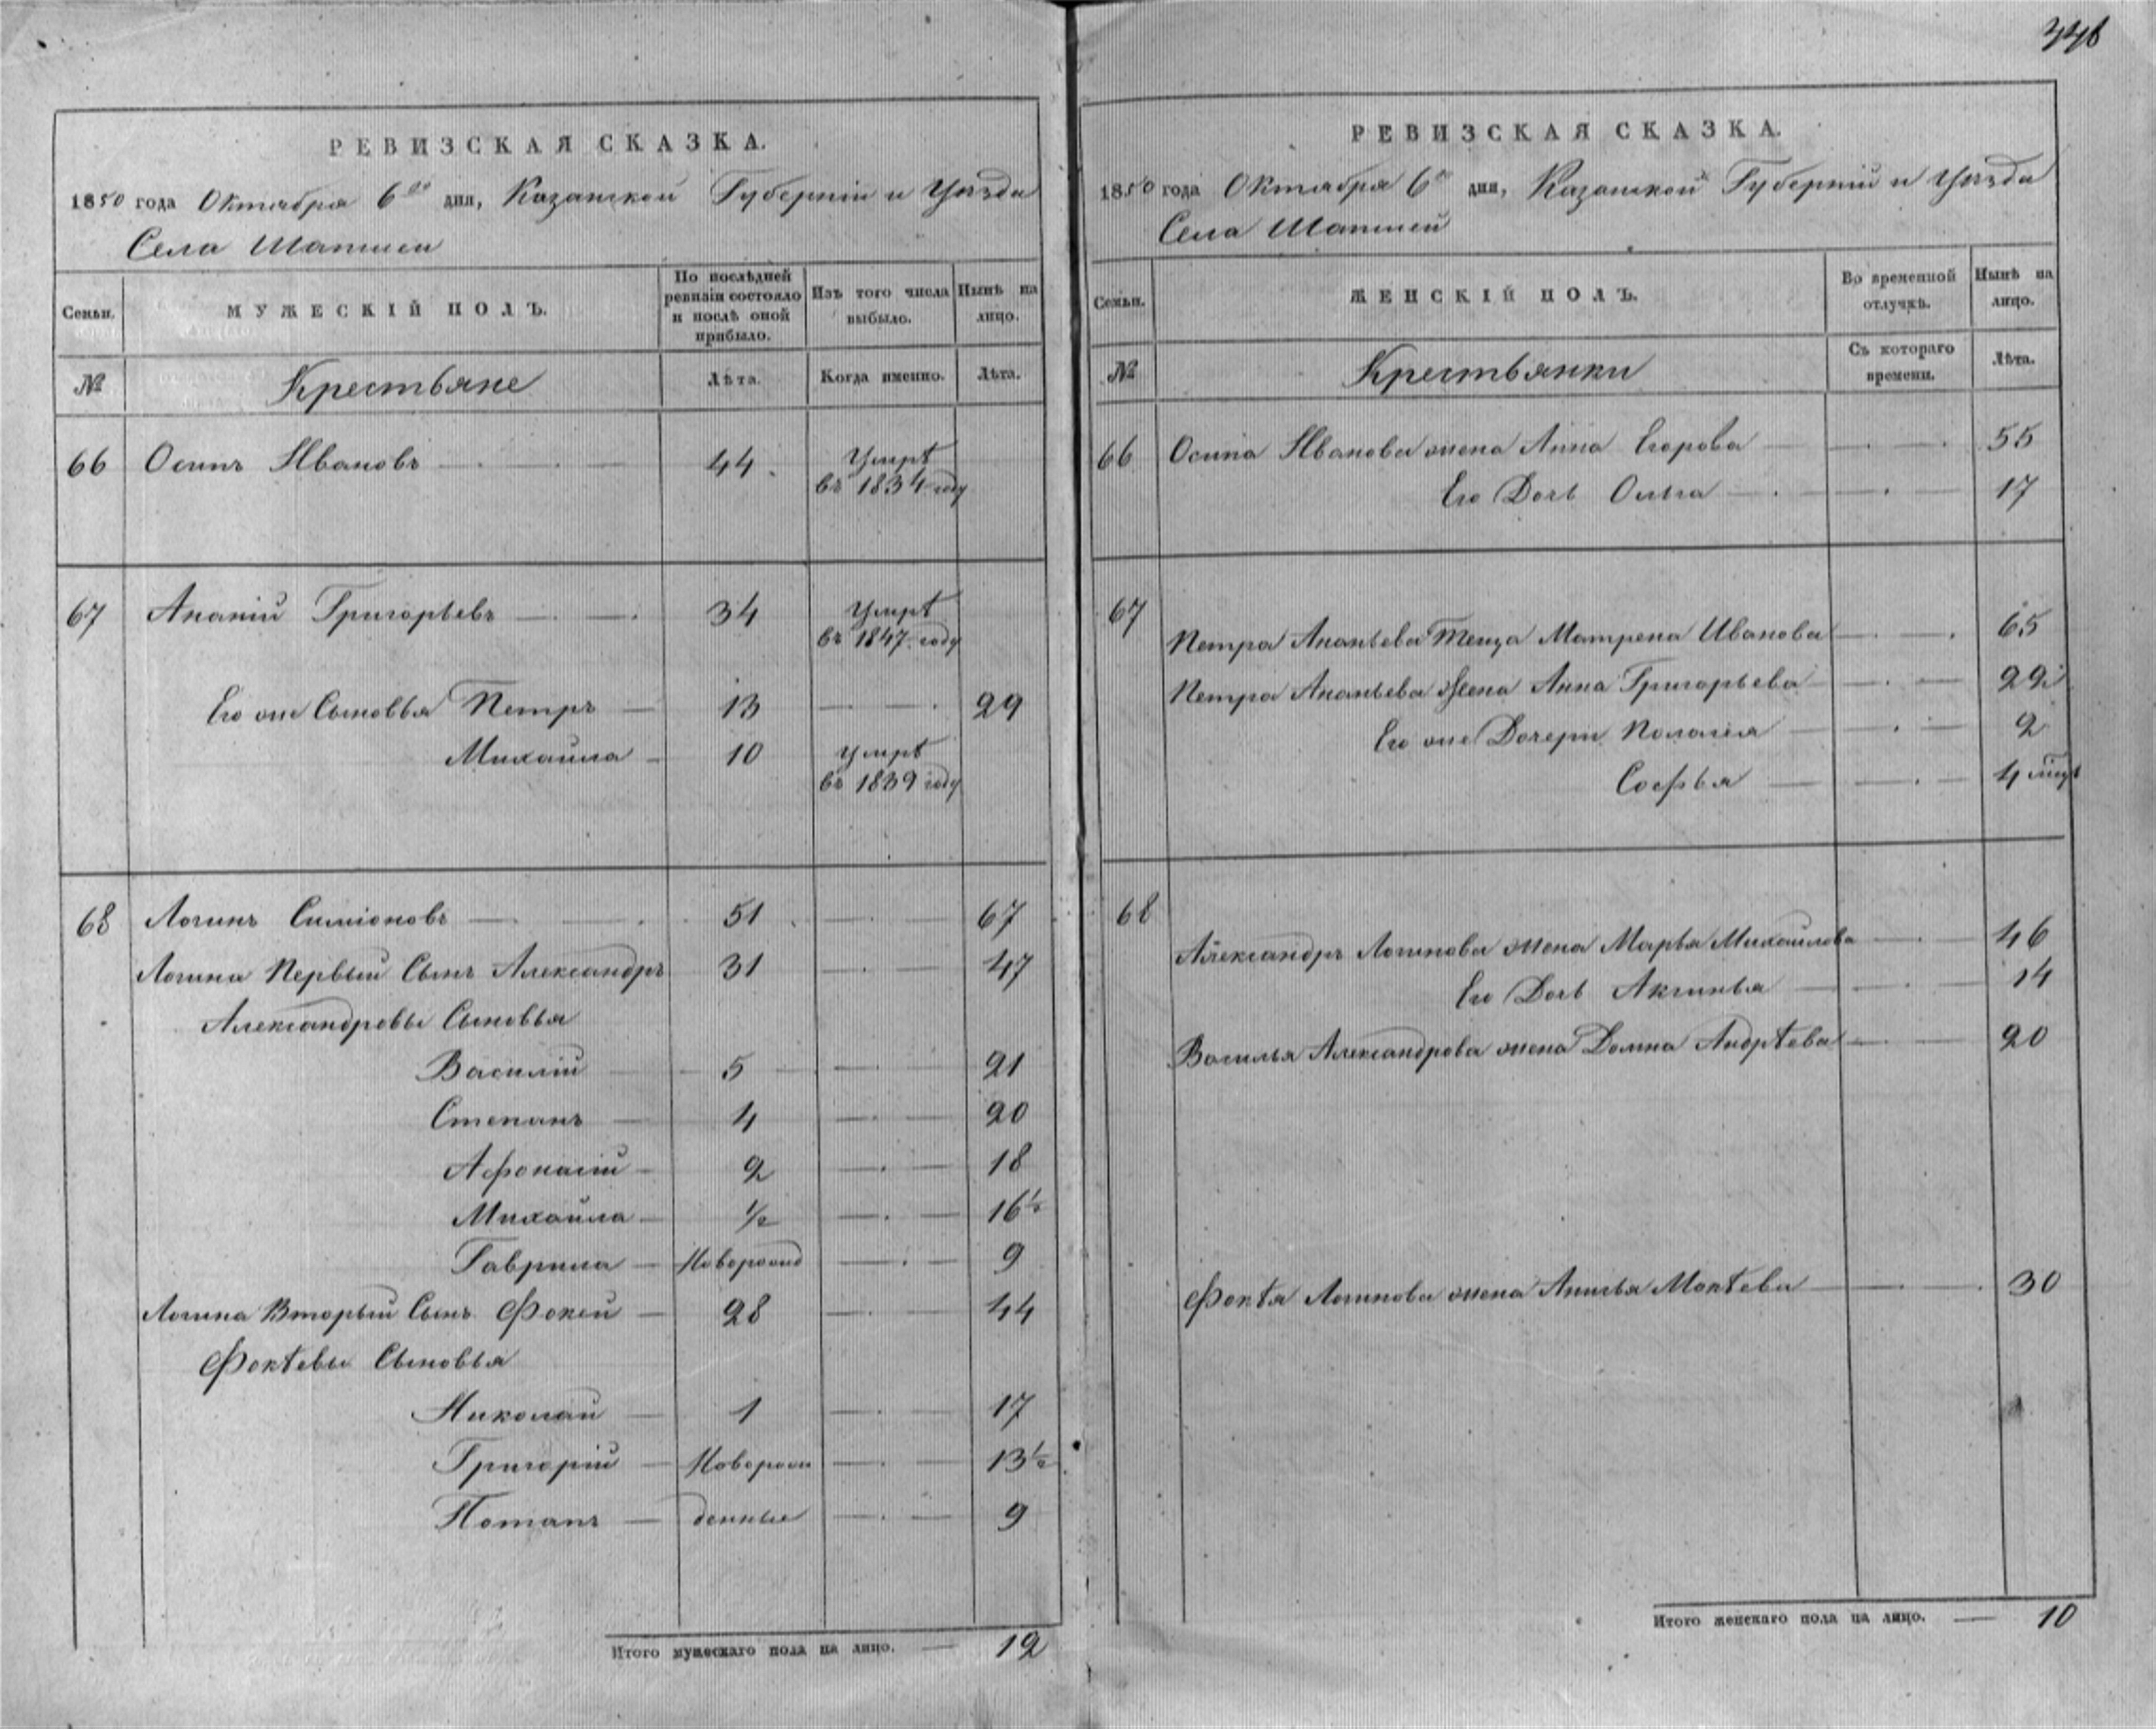 РЕВИЗСКАЯ СКАЗКА.
1850 года Октября 6го дня, Казанской Губерніи и Уѣзда
Села Шапшеи
Семьи. МУЖЕСКІЙ ПОЛЪ. По послѣдней ревизіи состояло и послѣ оной прибыло. Изъ того числа выбыло. Нынѣ на лицо.
№ Крестьяне Лѣта. Когда именно. Лѣта.
66 Осипъ Ивановъ 44 Умрѣ
въ 1834 году
67 Ананій Григорьевъ 34 Умрѣ
въ 1847 году
Его же Сыновья Петръ 13 29
Михайла 10 умрѣ
въ 1839 году
68 Логинъ Симіоновъ 51 67
Логина Первый Сынъ Александръ 31 47
Александровы Сыновья
Василій 5 21
Степанъ 4 20
Афонасій 2 18
Михайла ½ 16½
Гаврила Неворожд 9
Логина Вторый Сынъ Фокей 28 44
Фокѣевы Сыновья
Николай 1 17
Григорій Неворож 13½
Потапъ денные 9
Итого мужескаго пола на лицо. 12
РЕВИЗСКАЯ СКАЗКА.
1850 года Октября 6го дня, Казанской Губерніи и Уѣзда
Села Шапшей
Семьи. ЖЕНСКІЙ ПОЛЪ. Во временной отлучкѣ. Нынѣ на лицо.
№ Крестьянки Съ котораго времени. Лѣта.
66 Осипа Иванова жена Анна Егорова 55
Его Дочь Ольга 17
67
Петра Ананьева Теща Матрена Иванова 65
Петра Ананьева Жена Анна Григорьева 29
Его же Дочери Пологія 2
Софья 4 мѣць
68
Александръ Логинова жена Марья Михайлова 46
Его Дочь Аксинья 14
Василья Александрова жена Домна Андрѣева 20
Фокѣя Логинова жена Анисья Мокѣева 30
Итого женскаго пола на лицо. 10